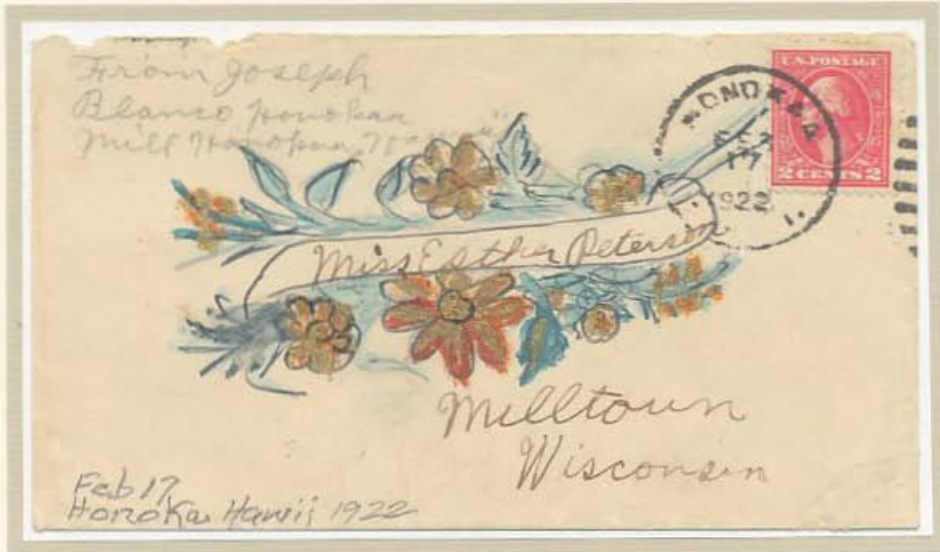 From Joseph
Blanco Honokaa
Mill Honokaa, Hawaii
U.S. POSTAGE
2 CENTS 2
HONOKAA
17
1922
Miss Esther Peterson
Milltown
Wisconsin
Feb 17
Honokaa Hawii 1922